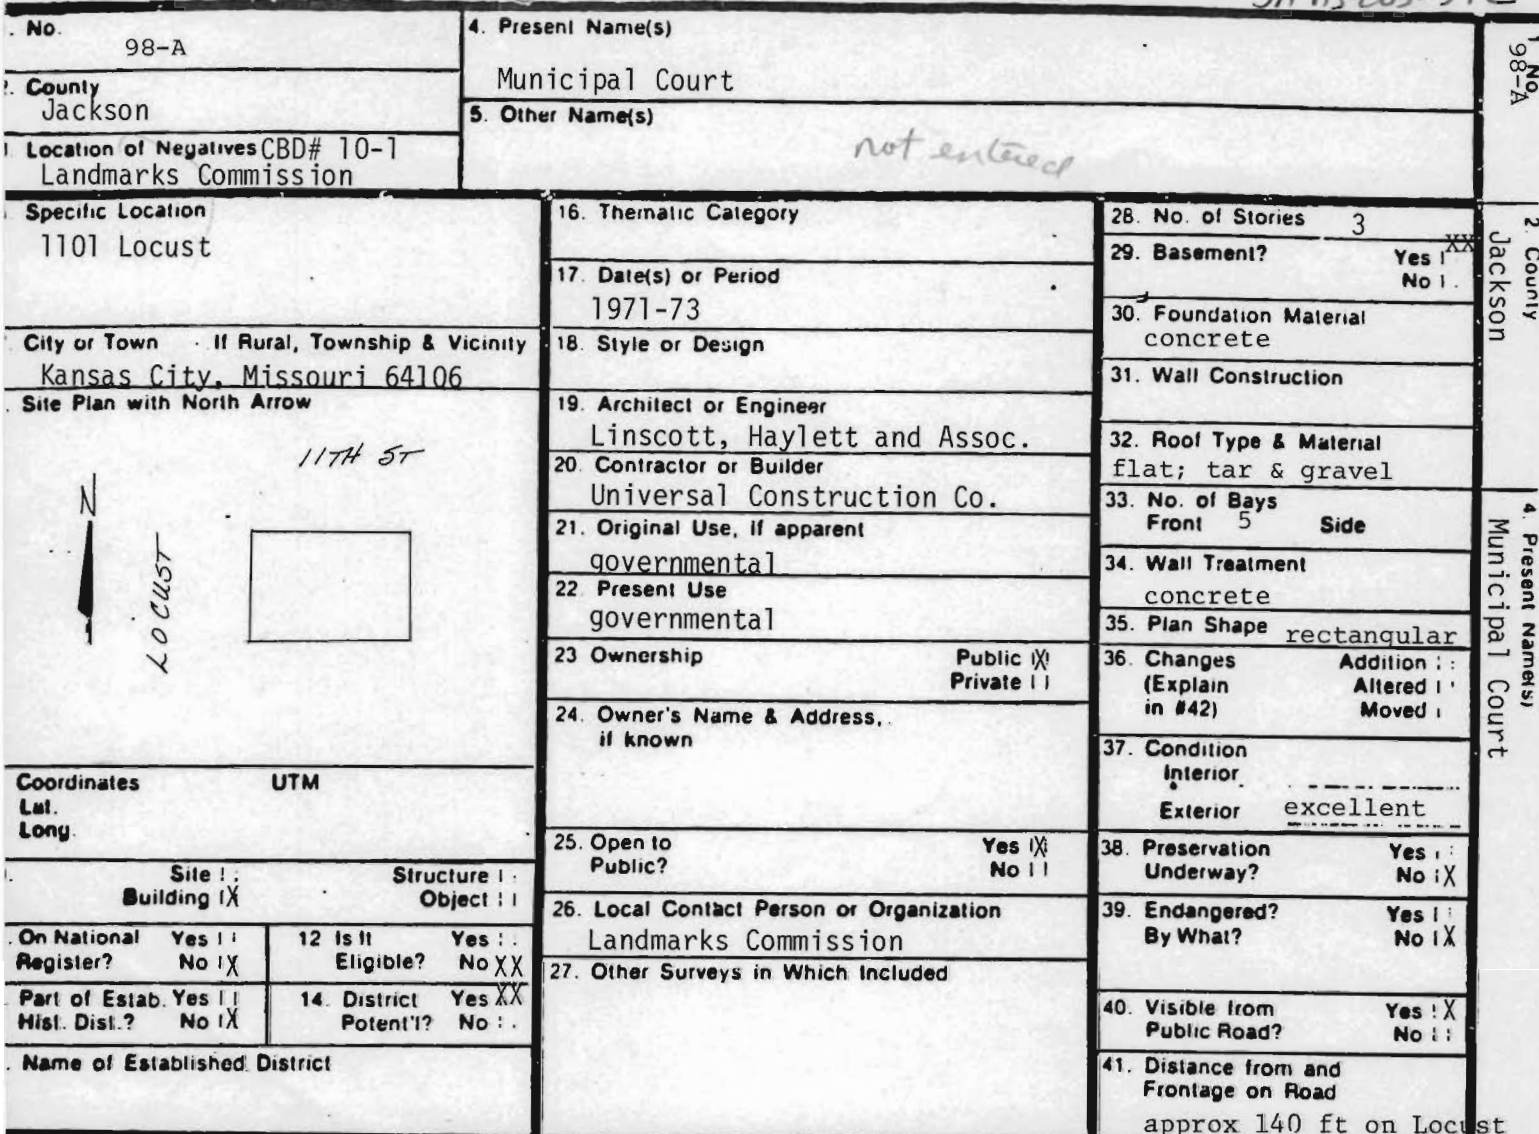 . No.
98-A
. County
Jackson
Location of Negatives CBD# 10-1
Landmarks Commission
4. Present Name(s)
Municipal Court
5. Other Name(s)
not entered
Specific Location
1101 Locust
City or Town If Rural, Township & Vicinity
Kansas City, Missouri 64106
. Site Plan with North Arrow
11TH ST
N
LOCUST
Coordinates UTM
Lat.
Long.
Site
Structure
Building X
Object
. On National Register? Yes
No X
12 Is It Eligible? Yes
No XX
Part of Estab. Hist. Dist.? Yes
No X
14. District Potent'l? Yes XX
No
. Name of Established District
16. Thematic Category
17. Date(s) or Period
1971-73
18. Style or Design
19. Architect or Engineer
Linscott, Haylett and Assoc.
20. Contractor or Builder
Universal Construction Co.
21. Original Use, if apparent
governmental
22. Present Use
governmental
23 Ownership Public X
Private
24. Owner's Name & Address,
if known
25. Open to Yes X
Public? No
26. Local Contact Person or Organization
Landmarks Commission
27. Other Surveys in Which Included
28. No. of Stories 3
29. Basement? Yes XX
No
30. Foundation Material
concrete
31. Wall Construction
32. Roof Type & Material
flat; tar & gravel
33. No. of Bays
Front 5 Side
34. Wall Treatment
concrete
35. Plan Shape rectangular
36. Changes Addition
(Explain Altered
in #42) Moved
37. Condition
Interior
Exterior excellent
38. Preservation Yes
Underway? No X
39. Endangered? Yes
By What? No X
40. Visible from Yes X
Public Road? No
41. Distance from and
Frontage on Road
approx 140 ft on Locust
1 No.
98-A
2. County
Jackson
4. Present Name(s)
Municipal Court